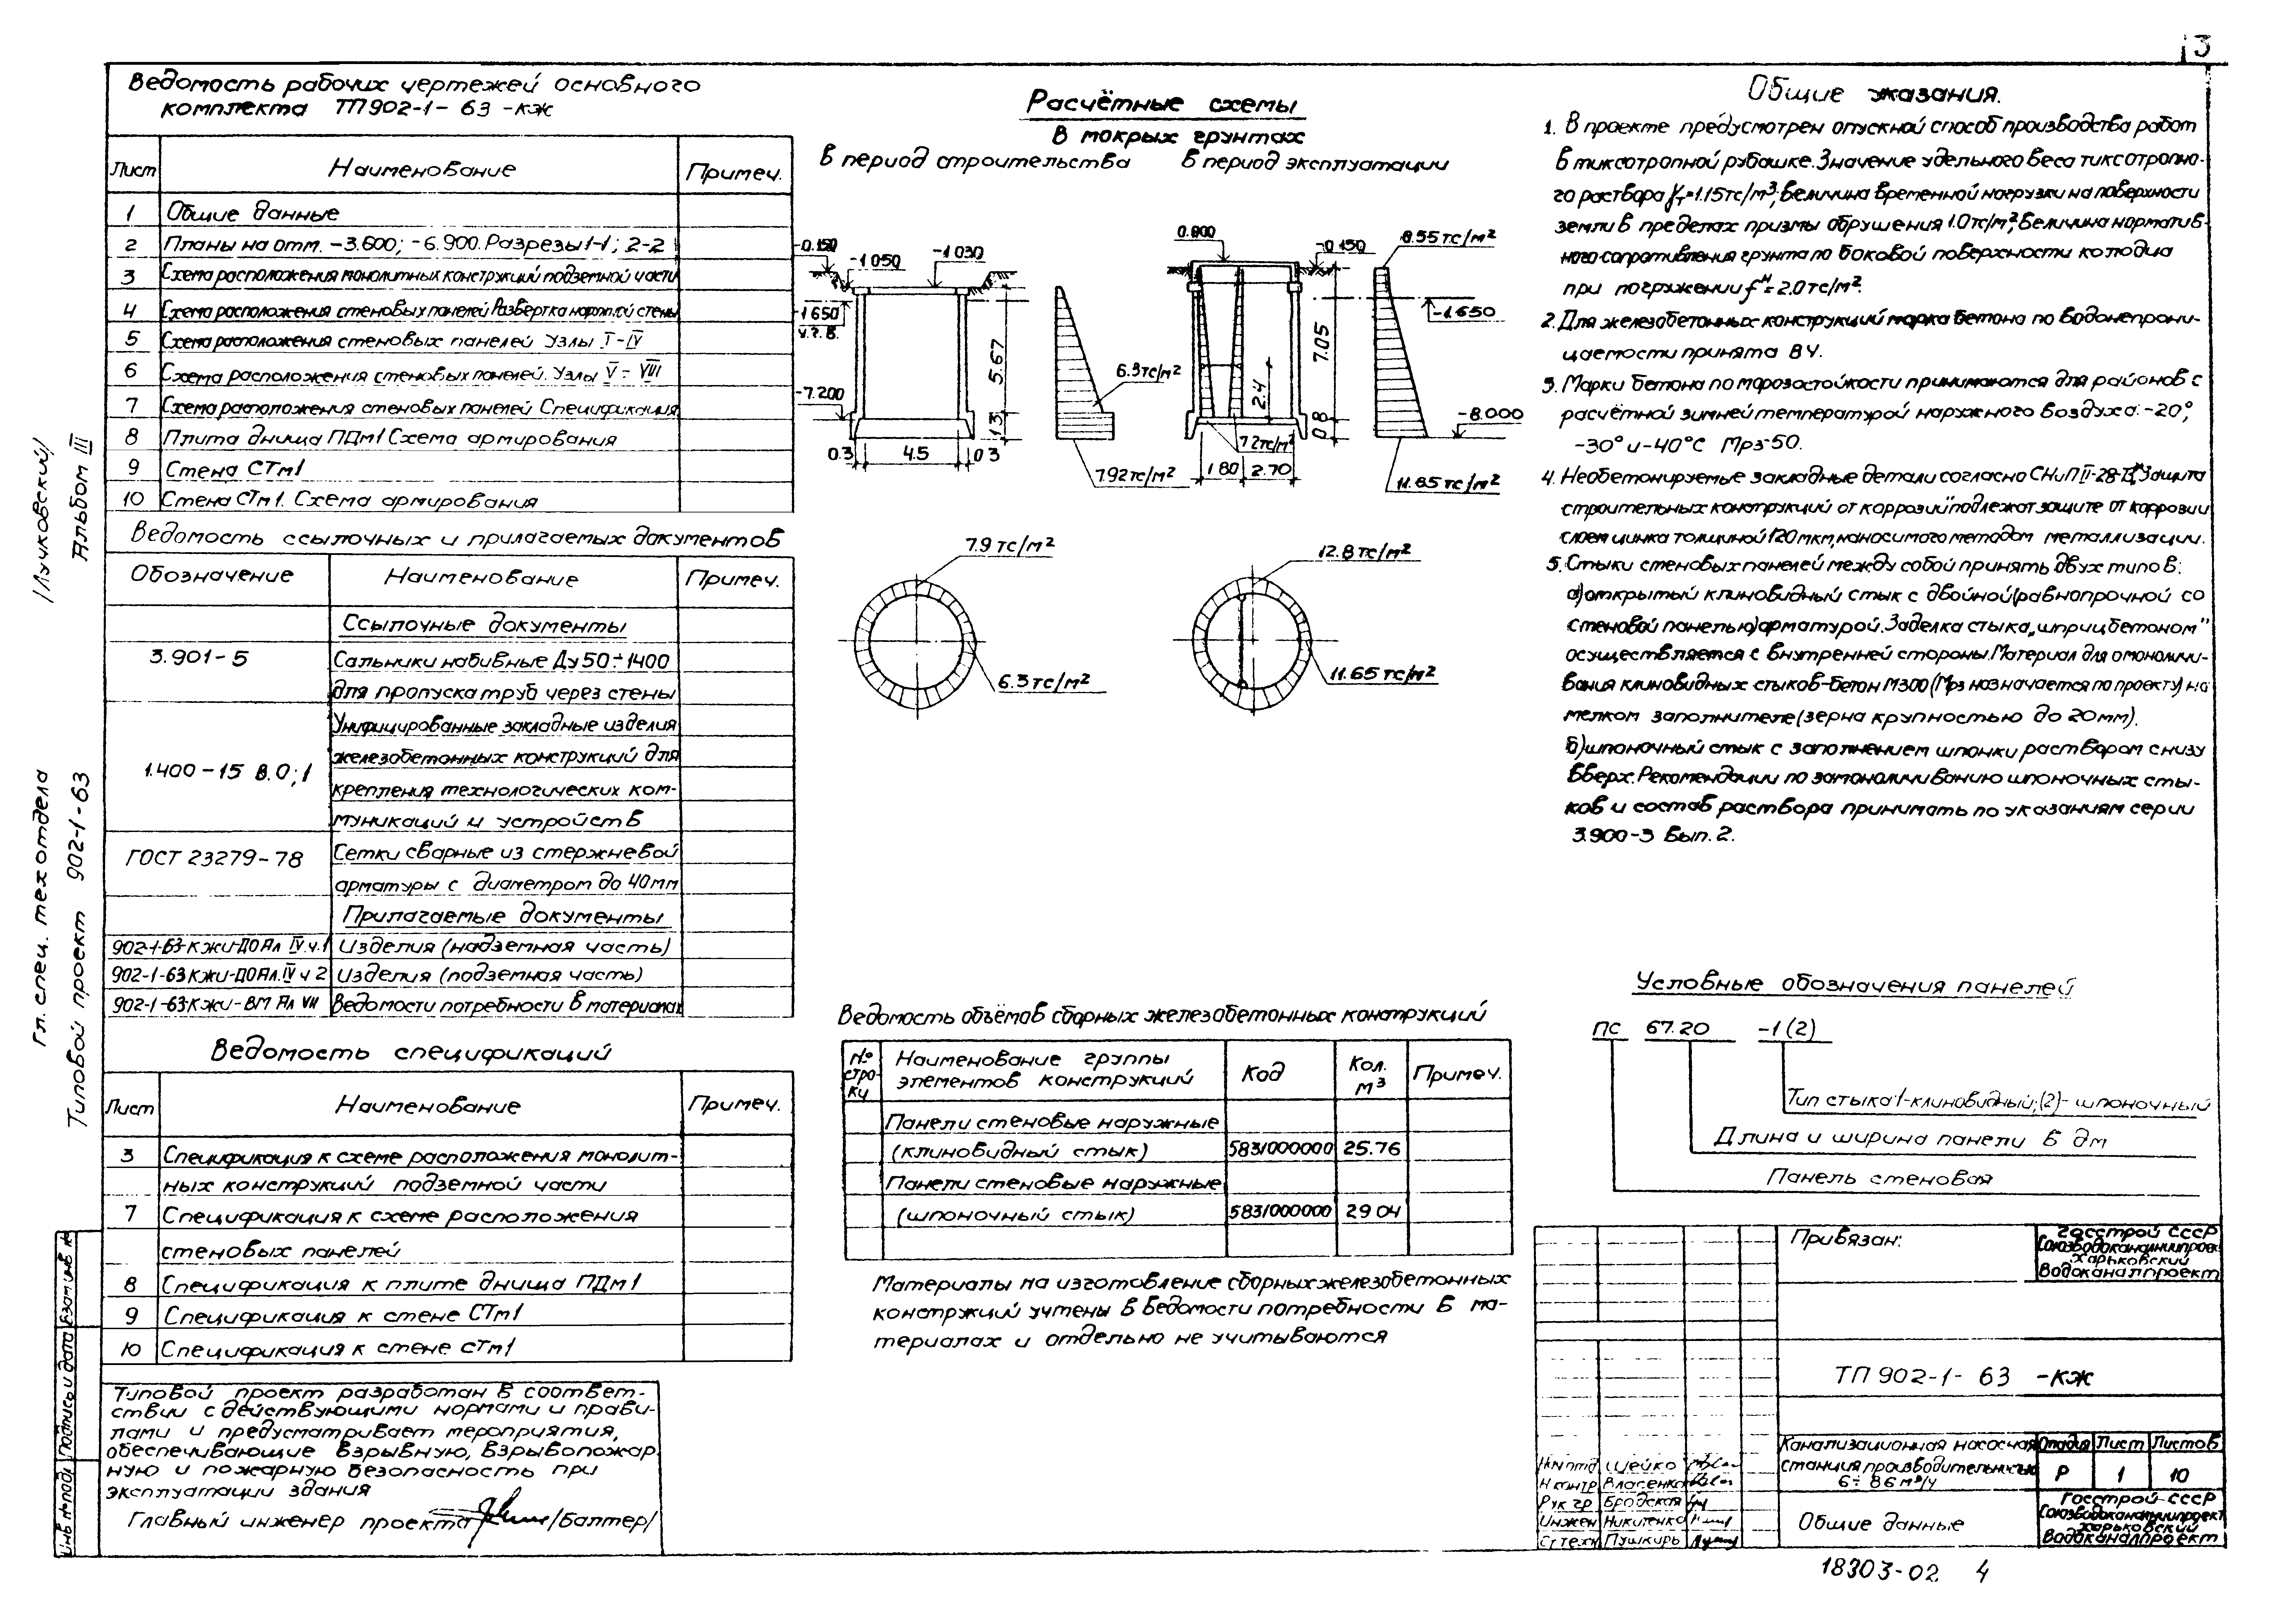 3
Ведомость рабочих чертежей основного
комплекта ТП902-1-63-КЖ
Лист Наименование Примеч.
1 Общие данные
2 Планы на отм. -3.600; -6.900. Разрезы 1-1; 2-2
3 Схема расположения монолитных конструкций подземной части
4 Схема расположения стеновых панелей Развертка наружной стены
5 Схема расположения стеновых панелей Узлы I-IV
6 Схема расположения стеновых панелей. Узлы V-VIII
7 Схема расположения стеновых панелей Спецификация
8 Плита днища ПДм1 Схема армирования
9 Стена СТм1
10 Стена СТм1. Схема армирования
Ведомость ссылочных и прилагаемых документов
Обозначение Наименование Примеч.
Ссылочные документы
3.901-5 Сальники набивные Ду 50÷1400
для пропуска труб через стены
Унифицированные закладные изделия
железобетонных конструкций для
1.400-15 В.0;1
крепления технологических ком-
муникаций и устройств
ГОСТ 23279-78 Сетки сварные из стержневой
арматуры с диаметром до 40мм
Прилагаемые документы
902-1-63-КЖИ-ДО Ал IV.ч.1 Изделия (надземная часть)
902-1-63КЖИ-ДО Ал.IV ч 2 Изделия (подземная часть)
902-1-63-КЖИ-ВМ Ал VII Ведомости потребности в материалах
Ведомость спецификаций
Лист Наименование Примеч.
3 Спецификация к схеме расположения монолит-
ных конструкций подземной части
7 Спецификация к схеме расположения
стеновых панелей
8 Спецификация к плите днища ПДм1
9 Спецификация к стене СТм1
10 Спецификация к стене СТм1
Типовой проект разработан в соответ-
ствии с действующими нормами и прави-
лами и предусматривает мероприятия,
обеспечивающие взрывную, взрывопожар
ную и пожарную безопасность при
эксплуатации здания
Главный инженер проекта /Балтер/
Расчётные схемы
В мокрых грунтах
В период строительства
-0.150
-1050
-1030
-1650
у.г.в.
-7.200
5.67
1.3
0.3 4.5 0.3
6.3тс/м²
7.92тс/м²
В период эксплуатации
0.800
-0.150
0.55тс/м²
-1.650
7.05
2.4
0.8
-8.000
7.2тс/м²
1.80 2.70
11.65тс/м²
7.9тс/м²
6.3тс/м²
12.8тс/м²
11.65тс/м²
Ведомость объёмов сборных железобетонных конструкций
№ стро-ки Наименование группы элементов конструкций Код Кол. м³ Примеч.
Панели стеновые наружные
(клиновидный стык) 5831000000 25.76
Панели стеновые наружные
(шпоночный стык) 5831000000 29 04
Материалы на изготовление сборных железобетонных
констркций учтены в Ведомости потребности в ма-
териалах и отдельно не учитываются
Общие указания.
1. В проекте предусмотрен опускной способ производства работ
в тиксотропной рубашке. Значение удельного веса тиксотропно-
го раствора γт=1.15тс/м³; величина временной нагрузки на поверхности
земли в пределах призмы обрушения 1.0тс/м²; Величина норматив-
ного сопротивления грунта по боковой поверхности колодца
при погружении fн=2.0тс/м².
2. Для железобетонных конструкций марка бетона по водонепрони-
цаемости принята В4.
3. Марки бетона по морозостойкости принимаются для районов с
расчётной зимней температурой наружного воздуха: -20°,
-30° и -40°С Мрз-50.
4. Необетонируемые закладные детали согласно СНиП II-28-73 „Защита
строительных конструкций от коррозии" подлежат защите от коррозии
слоем цинка толщиной 120мкм, наносимого методом металлизации.
5. Стыки стеновых панелей между собой принять двух типов:
а) открытый клиновидный стык с двойной (равнопрочной со
стеновой панелью) арматурой. Заделка стыка „шприцбетоном"
осуществляется с внутренней стороны. Материал для омоноличи-
вания клиновидных стыков-бетон М300 (Мрз назначается по проекту) на
мелком заполнителе (зерна крупностью до 20мм).
б) шпоночный стык с заполнением шпонки раствором снизу
вверх. Рекомендации по замоноличиванию шпоночных сты-
ков и состав раствора принимать по указаниям серии
3.900-3 Вып. 2.
Условные обозначения панелей
ПС 67.20 -1(2)
Тип стыка 1-клиновидный; (2)- шпоночный
Длина и ширина панели в дм
Панель стеновая
Привязан:
Госстрой СССР
Союзводоканалниипроект
Харьковский
Водоканалпроект
ТП 902-1-63 -КЖ
Канализационная насосная
станция производительностью
6÷86м³/ч
Стадия Лист Листов
Р 1 10
Общие данные
Госстрой СССР
Союзводоканалниипроект
Харьковский
Водоканалпроект
Нач отд Шейко
Н контр Власенко
Рук гр Бродская
Инжен Никитенко
Ст техн Пушкирь
18303-02 4
/Лучковский/
Гл. спец. тех отдела
Альбом III
Типовой проект 902-1-63
Взам инв №
Подпись и дата
Инв № подл